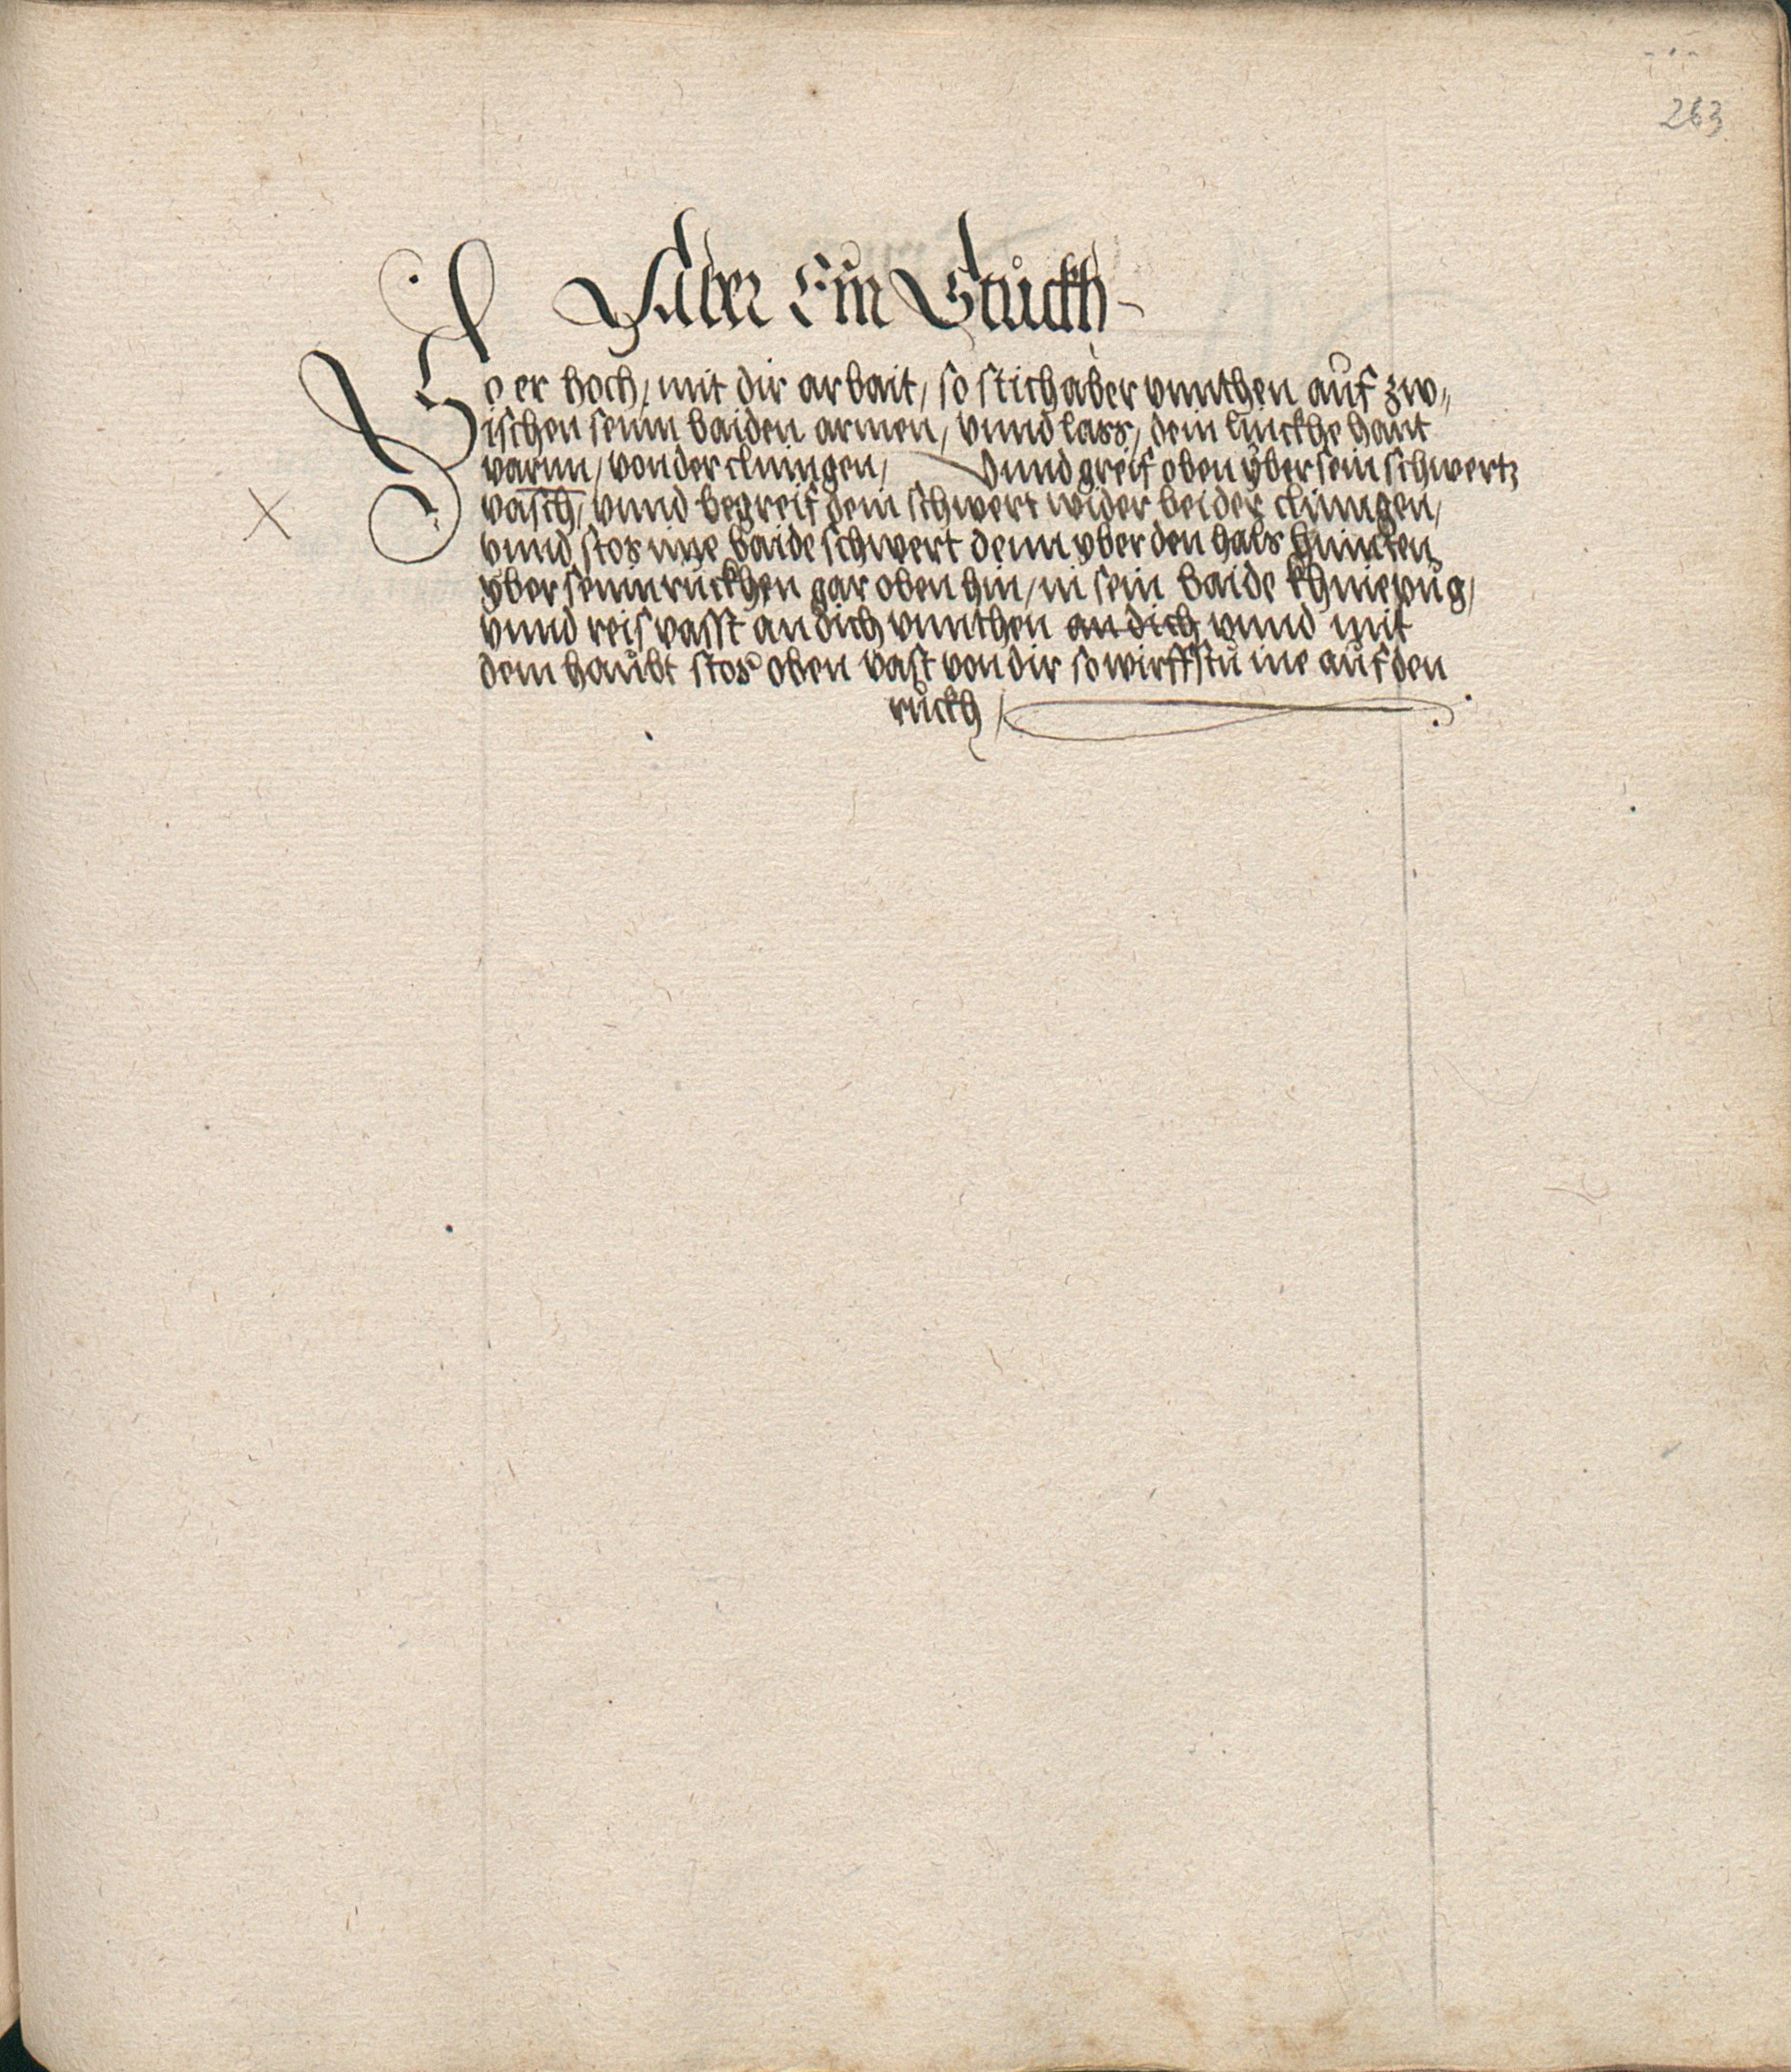 263
Aber Ein Stuckh
So er hoch, mit dir arbait, so stich aber vnnthen auf zw„
ischen seinn baiden armen, vnnd lass, dein linckhe hant
varnn, von der clningen, Vnnd greif oben yber sein schwertz
vasch, vnnd begreif dein schwert wider bei der clinngen,
vnnd stos ime baide schwert denn yber den hals hinnten
yber seinn ruckhen gar oben hin, in sein baide khniepug,
vnnd reis vasst an dich vnnthen an dich vnnd mit
dem haubt stos oben vast von dir so wirffstu ine auf den
ruckh